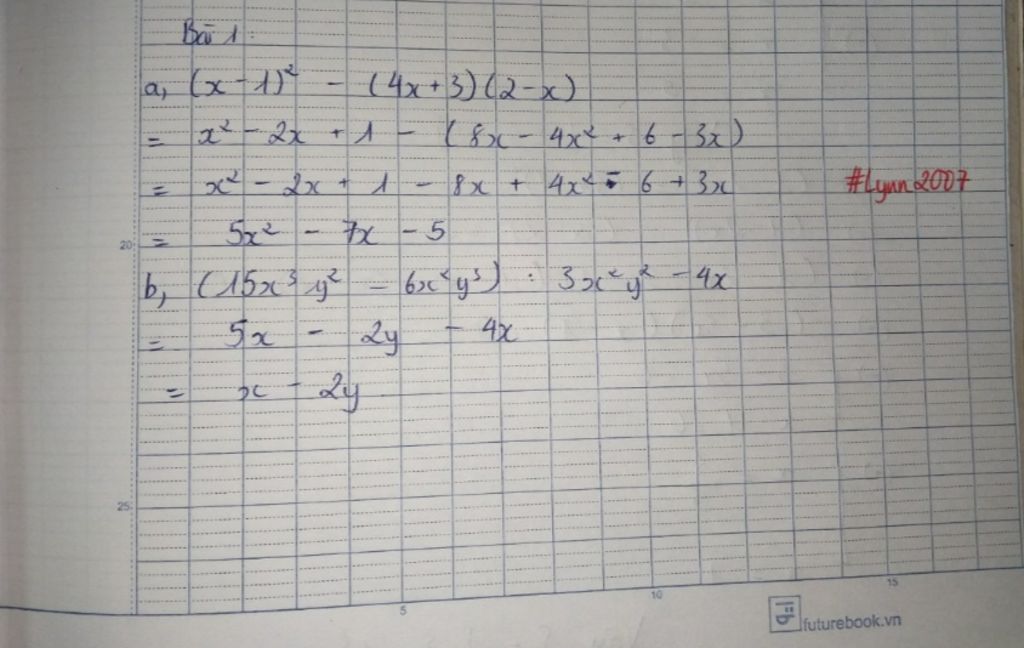 Bài 1:
a, (x - 1)² - (4x + 3)(2 - x)
= x² - 2x + 1 - (8x - 4x² + 6 - 3x)
= x² - 2x + 1 - 8x + 4x² - 6 + 3x
#Lynn2007
20
= 5x² - 7x - 5
b, (15x³y² - 6x²y³) : 3x²y² - 4x
= 5x - 2y - 4x
= x - 2y
25
5
10
15
futurebook.vn